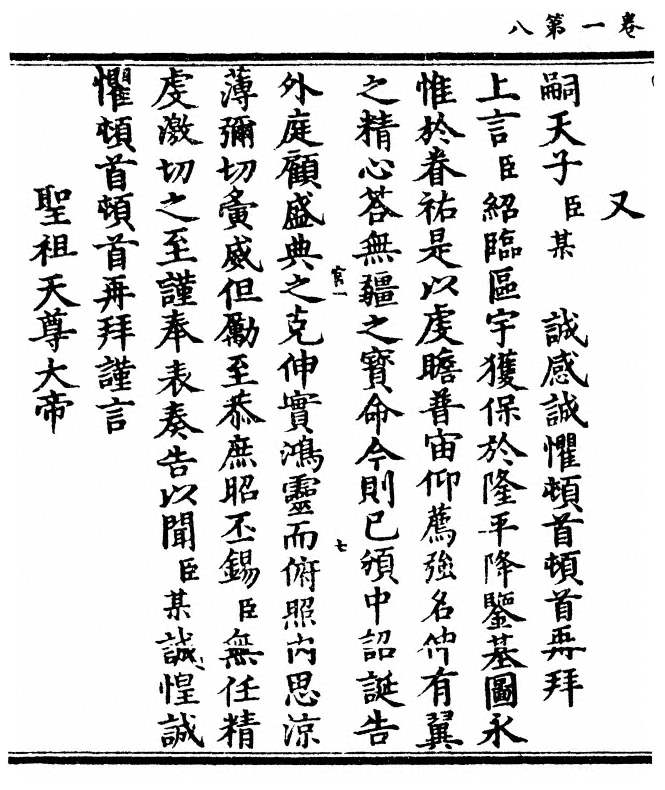 卷一第八
又
嗣天子臣某　誠感誠懼頓首頓首再拜
上言臣紹臨區宇獲保於隆平降鑒基圖永
惟於眷祐是以虔瞻普宙仰薦強名伸有翼
之精心荅無疆之寶命今則已頒中詔誕告
外庭顧盛典之克伸實鴻靈而俯照內思涼
官一
七
薄彌切夤威但勵至恭庶昭丕錫臣無任精
虔激切之至謹奉表奏告以聞臣某誠惶誠
懼頓首頓首再拜謹言
聖祖天尊大帝